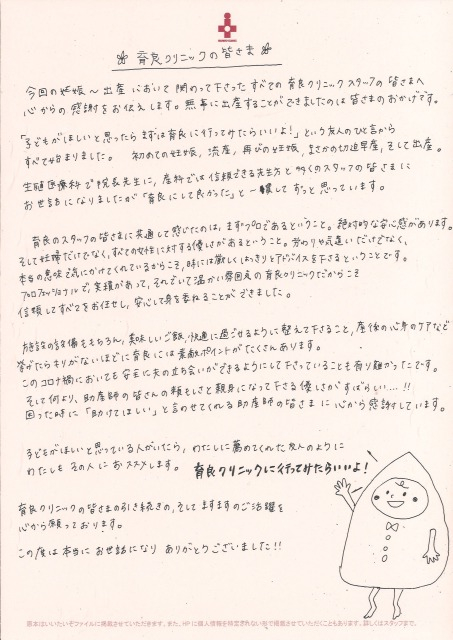 育良クリニックの皆さま
今回の妊娠〜出産において関わって下さったすべての育良クリニックスタッフの皆さまへ
心からの感謝をお伝えします。無事に出産することができましたのは皆さまのおかげです。
「子どもがほしいと思ったらまずは育良に行ってみたらいいよ!」という友人のひと言から
すべて始まりました。 初めての妊娠、流産、再びの妊娠、まさかの切迫早産、そして出産。
生殖医療科で院長先生に、産科では信頼できる先生方と多くのスタッフの皆さまに
お世話になりましたが「育良にして良かった」と一貫してずっと思っています。
育良のスタッフの皆さまに共通して感じたのは、まずプロであるということ。絶対的な安心感があります。
そして妊婦だけでなく、すべての女性に対する優しさがあるということ。労わりや気遣いだけでなく、
本当の意味で気にかけてくれているからこそ、時には厳しくはっきりとアドバイスを下さるということです。
プロフェッショナルで、実績があって、それでいて温かい雰囲気の育良クリニックだからこそ
信頼してすべてをお任せし、安心して身を委ねることができました。
施設の設備ももちろん、美味しいご飯、快適に過ごせるように整えて下さること、産後の心身のケアなど
挙げたらキリがないほどに育良には素敵ポイントがたくさんあります。
このコロナ禍においても安全に夫の立ち会いができるようにして下さっていることも有り難かったです。
そして何より、助産師の皆さんの頼もしさと親身になって下さる優しさがすばらしい...!!
困った時に「助けてほしい」と言わせてくれる助産師の皆さまに心から感謝しています。
子どもがほしいと思っている人がいたら、わたしに薦めてくれた友人のように
わたしもその人におススメします。 育良クリニックに行ってみたらいいよ!
育良クリニックの皆さまの引き続きの、そしてますますのご活躍を
心から願っております。
この度は本当にお世話になりありがとうございました!!
原本はいいたいぞファイルに掲載させていただきます。また、HPに個人情報を特定されない形で掲載させていただくこともあります。詳しくはスタッフまで。